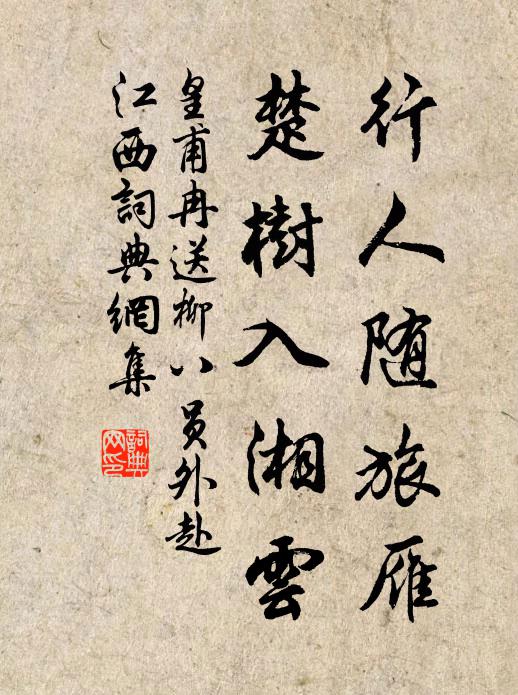 行人随旅雁
楚樹入湘雲
皇甫冉送柳八員外赴
江西詞典網集
詞典
网印